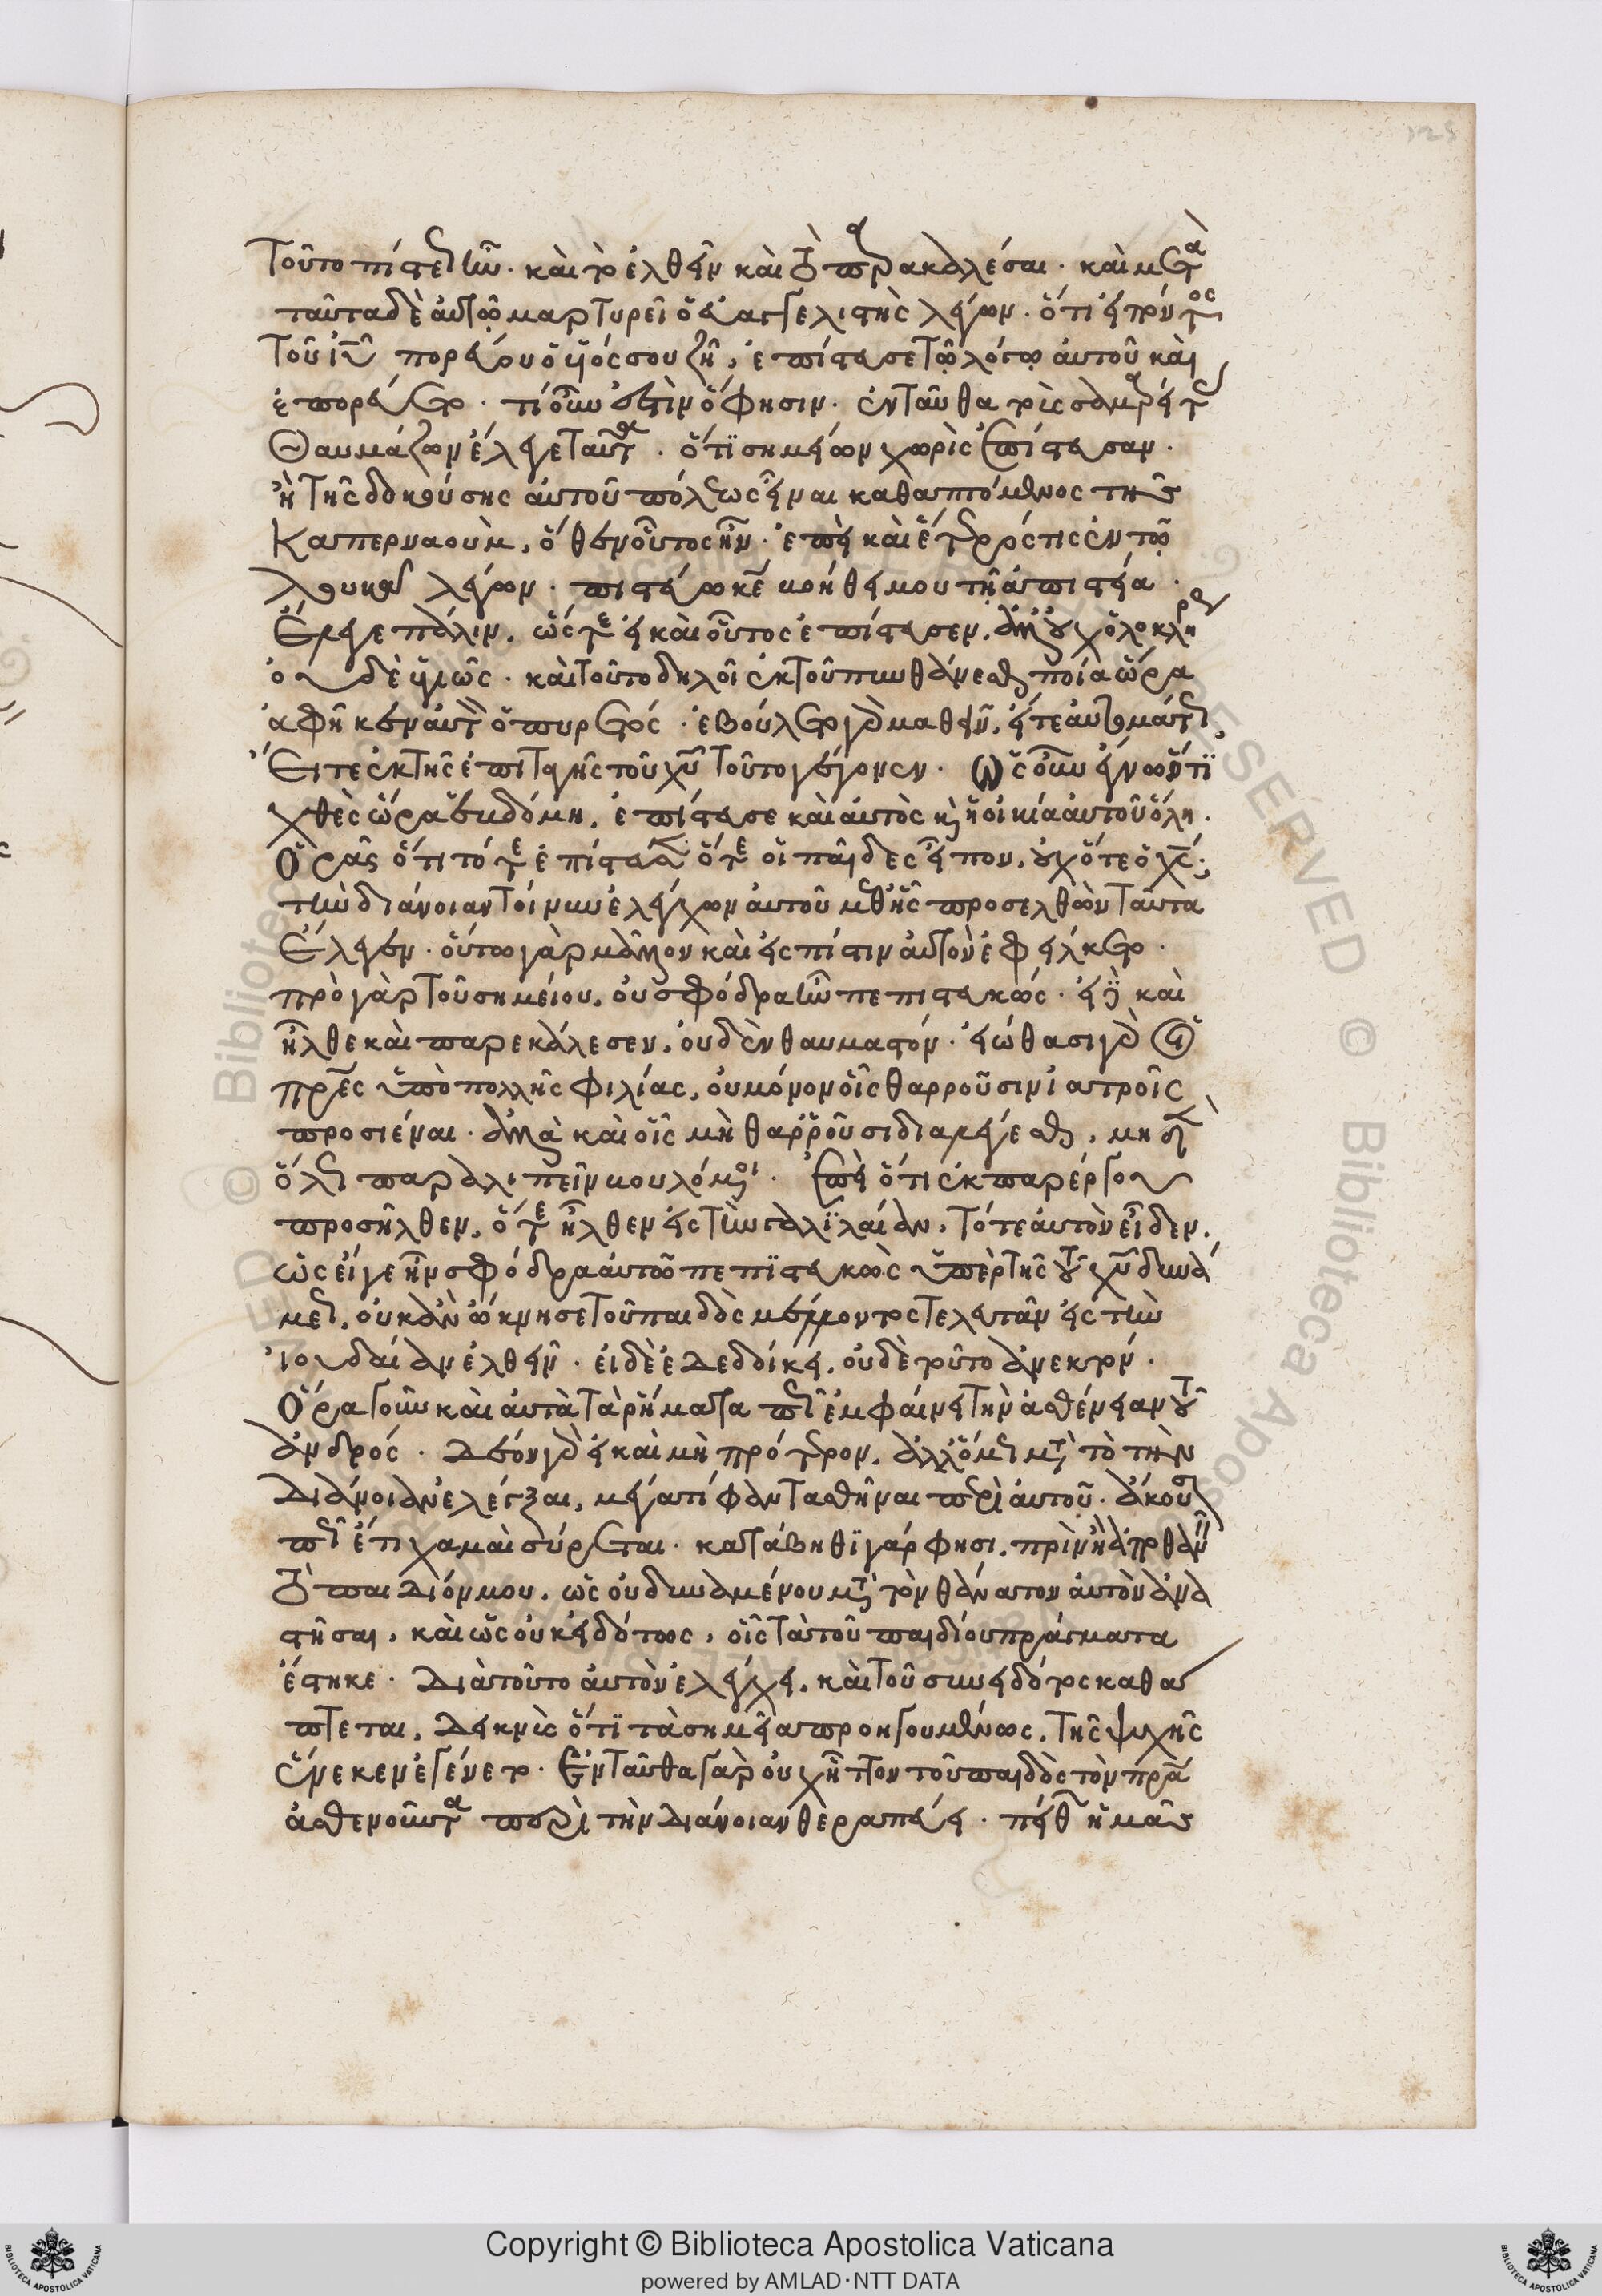 Τοῦτο πίστεως ἦν. καὶ τὸ ἐλθεῖν καὶ τὸ παρακαλέσαι. καὶ μετὰ
ταῦτα δὲ αὐτῷ μαρτυρεῖ ὁ εὐαγγελιστὴς λέγων. ὅτι εἰπόντος
τοῦ ἰυ πορεύου ὁ υἱός σου ζῆ, ἐπίστευσε τῷ λόγω αὐτοῦ καὶ
ἐπορεύετο. τί οὖν ἐστὶν ὅ φησιν. ἐνταῦθα τοὺς σαμαρείτας
Θαυμάζων ἔλεγε ταῦτα. ὅτι σημείων χωρὶς ἐπίστευσαν.
ἢ τῆς δοκούσης αὐτοῦ πόλεως εἶναι καθαπτόμενος τῆς
Καπερναοὺμ, ὅθεν οὗτος ἦν. ἐπεὶ καὶ ἕτερός τις ἐν τῷ
λουκᾶ λέγων. πιστεύω κε βοήθει μου τῇ ἀπιστία.
Ἔλεγε πάλιν. ὥστε εἰ καὶ οὗτος ἐπίστευσεν, ἀλλ' οὐχ ὁλοκλήρως
οὐδὲ ὑγιῶς. καὶ τοῦτο δηλοῖ ἐκ τοῦ πυνθάνεσθαι ποία ὥρα
ἀφῆκεν αὐτὸν ὁ πυρετός. ἐβούλετο γὰρ μαθεῖν, εἴτε αὐτομάτως,
Εἴτε ἐκ τῆς ἐπιταγῆς τοῦ χυ τοῦτο γέγονεν. Ὡς οὖν ἔγνω ὅτι
χθὲς ὥρα ἑβδόμη, ἐπίστευσε καὶ αὐτὸς καὶ ἡ οἰκία αὐτοῦ ὅλη.
Ὁρᾷς ὅτι τότε ἐπίστευσεν ὅτε οἱ παῖδες εἶπον, οὐχ ὅτε ὁ χς;
τὴν διάνοιαν τοίνυν ἐλέγχων αὐτοῦ μεθ' ἧς προσελθὼν ταῦτα
Ἔλεγεν. οὕτω γὰρ μᾶλλον καὶ εἰς πίστιν αὐτὸν ἐφείλκετο.
πρὸ γὰρ τοῦ σημείου, οὐ σφόδρα ἦν πεπιστευκώς. εἰ δὲ καὶ
ἦλθε καὶ παρεκάλεσεν, οὐδὲν θαυμαστόν. εἰώθασι γὰρ οἱ
πρες ὑπὸ πολλῆς φιλίας, οὐ μόνον οἷς θαρροῦσιν ἰατροῖς
προσιέναι. ἀλλὰ καὶ οἷς μὴ θαρροῦσι διαλέγεσθαι, μηδὲν
ὅλως παραλιπεῖν βουλόμενοι. ἐπεὶ ὅτι ἐκ παρέργου
προσῆλθεν, ὅτε ἦλθεν εἰς τὴν γαλιλαίαν, τότε αὐτὸν εἶδεν,
ὡς εἴγε ἦν σφόδρα αὐτῷ πεπιστευκὼς ὑπὲρ τῆς τοῦ χυ δυνά
μεως, οὐκ ἂν ὤκνησε τοῦ παιδὸς μέλλοντος τελευτᾶν εἰς τὴν
ἰουδαίαν ἐλθεῖν. εἰ δὲ ἐδεδοίκει, οὐδὲ τοῦτο ἀνεκτόν.
Ὅρα γοῦν καὶ αὐτὰ τὰ ῥήματα πῶς ἐμφαίνει τὴν ἀσθένειαν τοῦ
ἀνδρός. δέον γὰρ εἰ καὶ μὴ πρότερον, ἀλλ' ὅμως μετὰ τὸ τὴν
διάνοιαν ἐλέγξαι, μέγα τί φαντασθῆναι περὶ αὐτοῦ. ἄκουσον
πῶς ἔτι χαμαὶ σύρεται. κατάβηθι γάρ φησι, πρὶν ἢ ἀποθανεῖν
τὸ παιδίον μου. ὡς οὐ δυναμένου μετὰ τὸν θάνατον αὐτὸν ἀνα
στῆσαι, καὶ ὡς οὐκ εἰδότος, οἷς τὰ τοῦ παιδίου πράγματα
ἕστηκε. διὰ τοῦτο αὐτὸν ἐλέγχει, καὶ τοῦ συνειδότος καθά
πτεται, δεικνὺς ὅτι τὰ σημεῖα προηγουμένως, τῆς ψυχῆς
ἕνεκεν ἐγένετο. Ἐνταῦθα γὰρ οὐχ ἧττον τοῦ παιδὸς τὸν πρα
ἀσθενοῦντα περὶ τὴν διάνοιαν θεραπεύει. πείθων ἡμᾶς
Copyright © Biblioteca Apostolica Vaticana
powered by AMLAD·NTT DATA